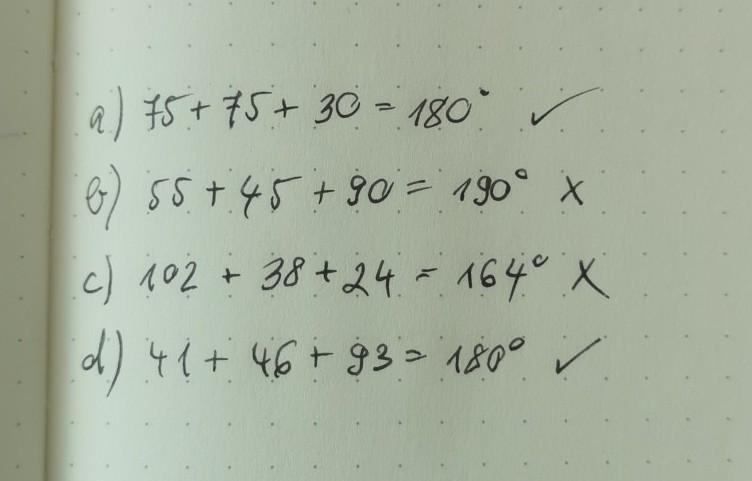 a) 75 + 75 + 30 = 180° ✓
b) 55 + 45 + 90 = 190° X
c) 102 + 38 + 24 = 164° X
d) 41 + 46 + 93 = 180° ✓